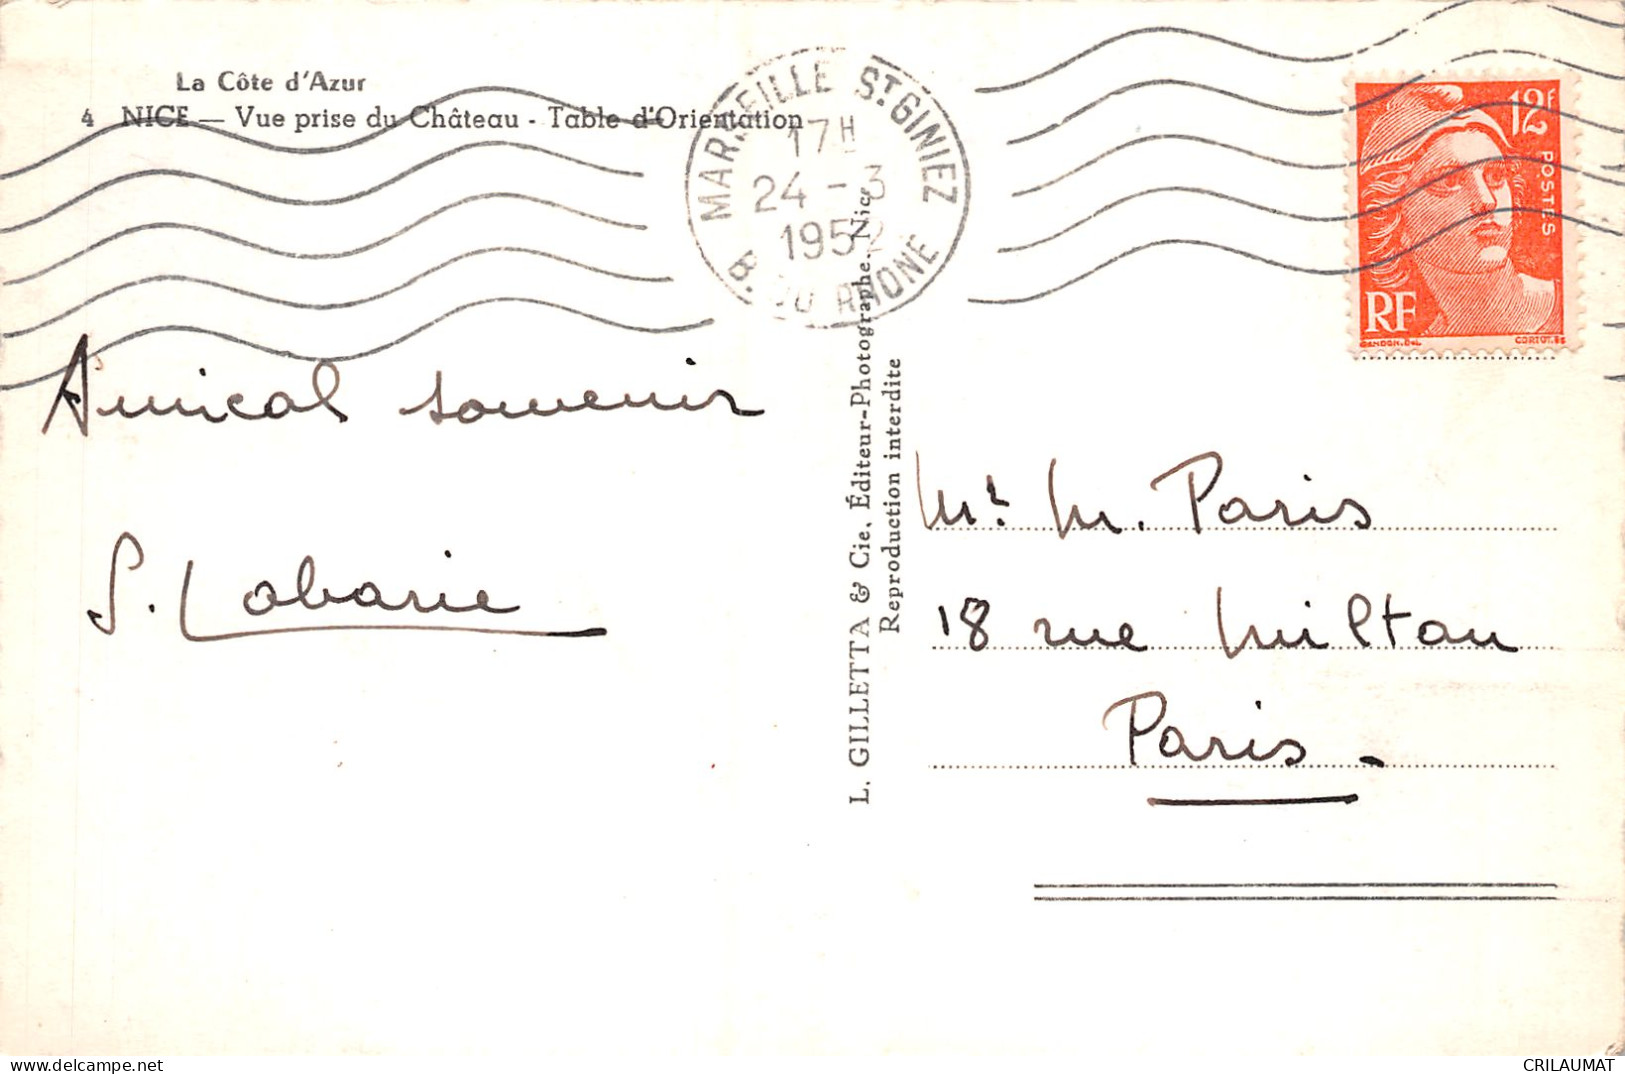 La Côte d'Azur
4 NICE — Vue prise du Château - Table d'Orientation
MARSEILLE ST GINIEZ
17H
24 - 3
1952
B. DU RHONE
12F
POSTES
RF
GANDON.DEL
CORTOT.SC
Amical souvenir
S. Labarie
L. GILLETTA & Cie, Éditeur-Photographe, Nice
Reproduction interdite
Mr M. Paris
18 rue Milton
Paris -
CRILAUMAT